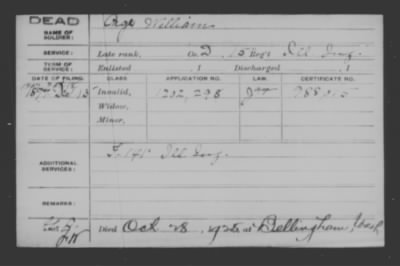 DEAD
NAME OF SOLDIER: Orge William
SERVICE: Late rank, Co. D, 15 Reg't Ill Inf.
TERM OF SERVICE: Enlisted , 1 Discharged , 1
DATE OF FILING. CLASS. APPLICATION NO. LAW. CERTIFICATE NO.
Invalid, 1202,298
Widow,
Minor,
ADDITIONAL SERVICES: Ill Inf.
REMARKS:
Died Oct 28, 1925 at Bellingham, Wash